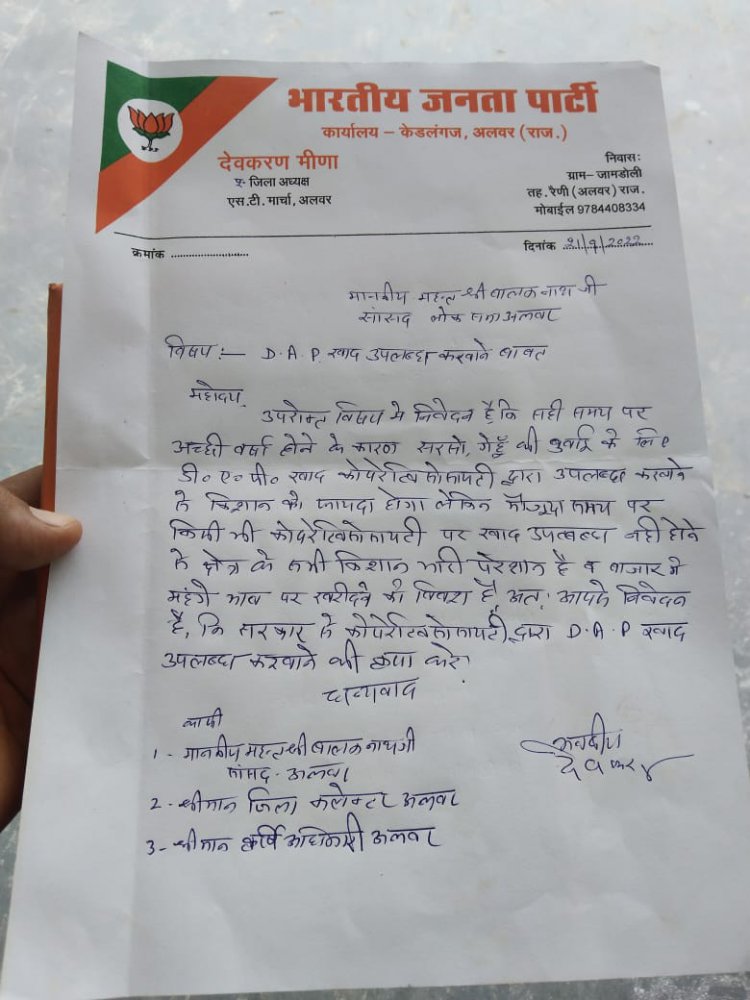 भारतीय जनता पार्टी
कार्यालय – केडलंगज, अलवर (राज.)
देवकरण मीणा
जिला अध्यक्ष
एस.टी. मार्चा, अलवर
निवास:
ग्राम– जामडोली
तह. रैणी (अलवर) राज.
मोबाईल 9784408334
क्रमांक ........................
दिनांक 21/9/2022
माननीय महन्त श्री बालक नाथ जी
सांसद लोक सभा अलवर
विषय :— D.A.P. खाद उपलब्ध करवाने बाबत
महोदय,
उपरोक्त विषय मे निवेदन है कि सही समय पर
अच्छी वर्षा होने के कारण सरसो, गेहूँ की बुवाई के लिए
डी० ए० पी० खाद कोपरेटिव सोसायटी द्वारा उपलब्ध करवाने
से किसान को फायदा होगा लेकिन मौजूदा समय पर
किसी भी कोपरेटिव सोसायटी पर खाद उपलब्ध नही होने
से क्षेत्र के सभी किसान भारी परेशान है व बाजार मे
महंगे भाव पर खरीदने को विवश है, अत: आपसे निवेदन
है, कि सरकार से कोपरेटिव सोसायटी द्वारा D.A.P खाद
उपलब्ध करवाने की कृपा करे।
धन्यवाद
कापी
1 - माननीय महन्त श्री बालक नाथ जी
सांसद - अलवर
2 - श्रीमान जिला कलेक्टर अलवर
3 - श्रीमान कृषि अधिकारी अलवर
भवदीय